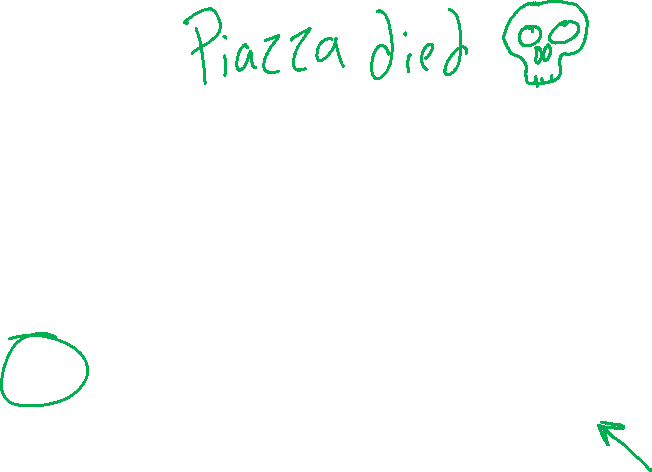 Piazza died